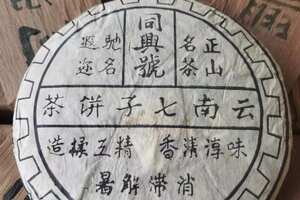 正山
名茶
同興號
馳名
遐迩
云南七子餅茶
味淳清香精工揉造
消滯解暑